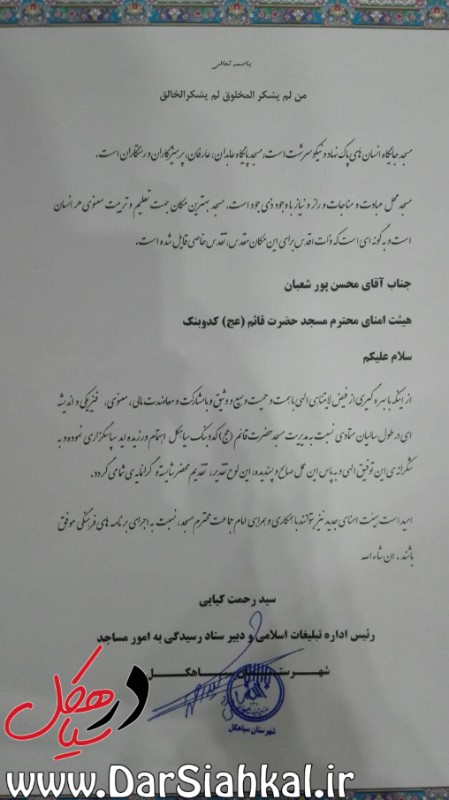 باسمه تعالی
من لم یشکر المخلوق لم یشکرالخالق
مسجد جایگاه انسان های پاک نهاد و نیکو سرشت است، مسجد پایگاه عابدان، عارفان، پرهیزکاران و رستگاران است.
مسجد محل عبادت و مناجات و راز و نیاز با وجود ذی جود است. مسجد بهترین مکان جهت تعلیم و تربیت معنوی هر انسان
است و به گونه ای است که ذات اقدس برای این مکان مقدس، تقدس خاصی قایل شده است.
جناب آقای محسن پور شعبان
هیئت امنای محترم مسجد حضرت قائم (عج) کدوبنک
سلام علیکم
از اینکه با بهره گیری از فیض لایتناهی الهی با همت و حمیت وسیع و وثیق و با مشارکت و معاضدت مالی، معنوی، فیزیکی و اندیشه
ای در طول سالیان متمادی نسبت به مدیریت مسجد حضرت قائم (عج) کدوبنک سیاهکل اهتمام ورزیده اید سپاسگزاری نموده و به
شکرانه ی این توفیق الهی و به پاس این عمل صالح و پسندیده، این لوح تقدیر، تقدیم محضر شایسته و گرانمایه ی شما می گردد.
امید است هیئت امنای جدید نیز بتوانند با همکاری و همراهی امام جماعت محترم مسجد، نسبت به اجرای برنامه های فرهنگی موفق
باشند - ان شاء الله
سید رحمت کیایی
رئیس اداره تبلیغات اسلامی و دبیر ستاد رسیدگی به امور مساجد
شهرستان سیاهکل
شهرستان سیاهکل
در سیاهکل
www.DarSiahkal.ir